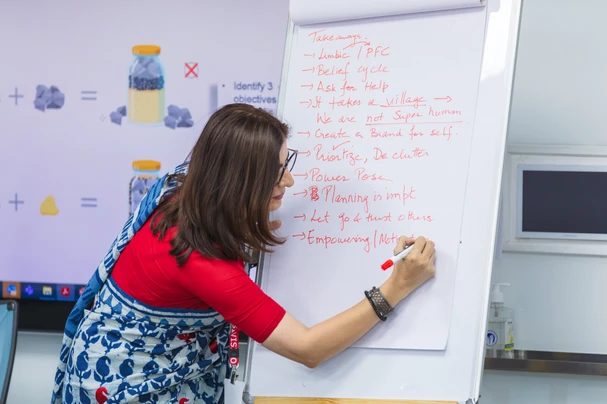 Identify 3
objectives
Takeaways
→ Limbic / PFC
→ Belief cycle
→ Ask for Help
→ It takes a village →
We are not Super human
→ Create a Brand for self
→ Prioritize, De clutter
→ Power Pose
→ Planning is impt
→ Let go & trust others
→ Empowering /